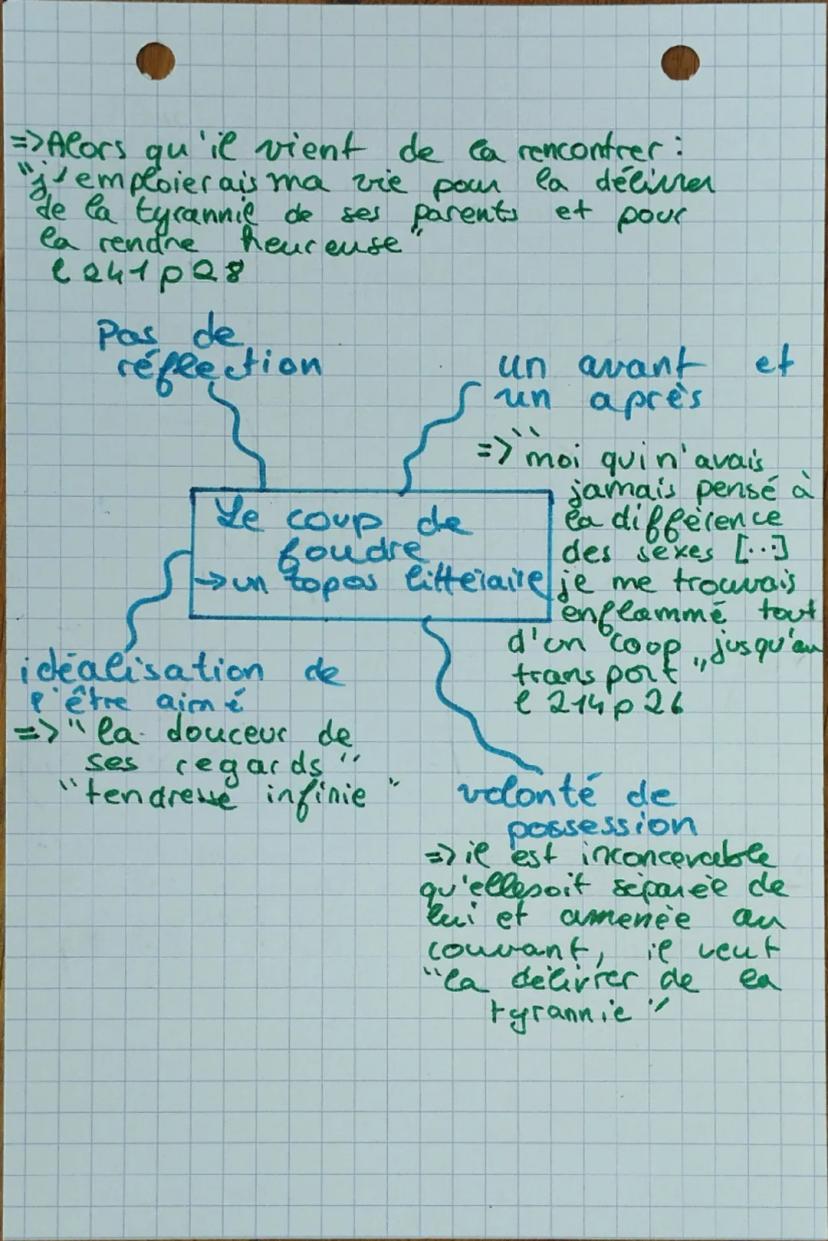 =>Alors qu'il vient de la rencontrer :
"j'emploierais ma vie pour la délivrer
de la tyrannie de ses parents et pour
la rendre heureuse"
l 241 p 28
Pas de
réflection
un avant et
un après
=>"moi qui n'avais
jamais pensé à
la différence
des sexes [...]
je me trouvais
enflammé tout
d'un coop jusqu'au
transport"
l 214 p 26
Le coup de
foudre
→un topos littéraire
idéalisation de
l'être aimé
=>"la douceur de
ses regards"
"tendresse infinie"
volonté de
possession
=> il est inconcevable
qu'elle soit séparée de
lui et amenée au
couvant, il veut
"la délivrer de la
tyrannie"